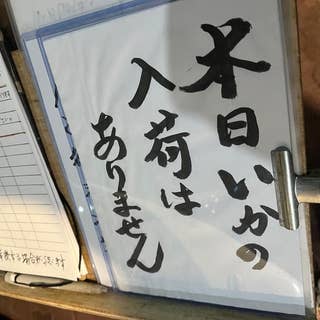 本日いかの
入荷は
ありません